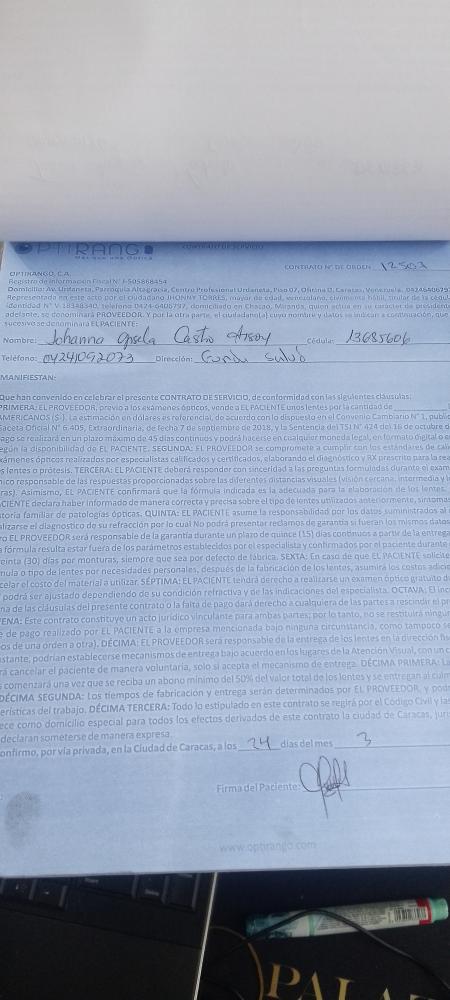 OPTIRANGO
MÁS QUE UNA ÓPTICA
CONTRATO DE SERVICIO
CONTRATO N° DE ORDEN 12503
OPTIRANGO, C.A.
Registro de Información Fiscal N° J-505868454
Domicilio: Av. Urdaneta, Parroquia Altagracia, Centro Profesional Urdaneta, Piso 07, Oficina D, Caracas, Venezuela. 0424640679
Representada en este acto por el ciudadano JHONNY TORRES, mayor de edad, venezolano, civilmente hábil, titular de la cédul
identidad N° V-18348340, teléfono 0424-6406797, domiciliado en Chacao, Miranda, quien actúa en su carácter de president
adelante, se denominará PROVEEDOR. Y por la otra parte, el ciudadano(a) cuyo nombre y datos se indican a continuación, que
sucesivo se denominará EL PACIENTE:
Nombre: Johanna Castro Cédula: 13685606
Teléfono: 04241092073 Dirección: salud
MANIFIESTAN:
Que han convenido en celebrar el presente CONTRATO DE SERVICIO, de conformidad con las siguientes cláusulas:
PRIMERA: EL PROVEEDOR, previo a los exámenes ópticos, vende a EL PACIENTE unos lentes por la cantidad de
AMERICANOS ($-). La estimación en dólares es referencial, de acuerdo con lo dispuesto en el Convenio Cambiario N° 1, public
Gaceta Oficial N° 6.405, Extraordinaria, de fecha 7 de septiembre de 2018, y la Sentencia del TSJ N° 424 del 16 de octubre d
ago se realizará en un plazo máximo de 45 días continuos y podrá hacerse en cualquier moneda legal, en formato digital o e
egún la disponibilidad de EL PACIENTE. SEGUNDA: EL PROVEEDOR se compromete a cumplir con los estándares de cali
exámenes ópticos realizados por especialistas calificados y certificados, elaborando el diagnóstico y RX prescrito para la rea
s lentes o prótesis. TERCERA: EL PACIENTE deberá responder con sinceridad a las preguntas formuladas durante el exam
nico responsable de las respuestas proporcionadas sobre las diferentes distancias visuales (visión cercana, intermedia y l
ras). Asimismo, EL PACIENTE confirmará que la fórmula indicada es la adecuada para la elaboración de los lentes.
CIENTE declara haber informado de manera correcta y precisa sobre el tipo de lentes utilizados anteriormente, síntomas
toria familiar de patologías ópticas. QUINTA: EL PACIENTE asume la responsabilidad por los datos suministrados al
alizarse el diagnostico de su refracción por lo cual No podrá presentar reclamos de garantía si fueran los mismos datos
ro EL PROVEEDOR será responsable de la garantía durante un plazo de quince (15) días continuos a partir de la entrega
a fórmula resulta estar fuera de los parámetros establecidos por el especialista y confirmados por el paciente durante
einta (30) días por monturas, siempre que sea por defecto de fábrica. SEXTA: En caso de que EL PACIENTE solicite
mula o tipo de lentes por necesidades personales, después de la fabricación de los lentes, asumirá los costos adicio
celar el costo del material a utilizar. SÉPTIMA: EL PACIENTE tendrá derecho a realizarse un examen óptico gratuito d
podrá ser ajustado dependiendo de su condición refractiva y de las indicaciones del especialista. OCTAVA: El inc
na de las cláusulas del presente contrato o la falta de pago dará derecho a cualquiera de las partes a rescindir el pr
VENA: Este contrato constituye un acto jurídico vinculante para ambas partes; por lo tanto, no se restituirá ningun
e de pago realizado por EL PACIENTE a la empresa mencionada bajo ninguna circunstancia, como tampoco se
os de una orden a otra). DÉCIMA: EL PROVEEDOR será responsable de la entrega de los lentes en la dirección fis
stante, podrían establecerse mecanismos de entrega bajo acuerdo en los lugares de la Atención Visual, con un c
rá cancelar el paciente de manera voluntaria, solo si acepta el mecanismo de entrega. DÉCIMA PRIMERA: La
s comenzará una vez que se reciba un abono mínimo del 50% del valor total de los lentes y se entregan al culm
DÉCIMA SEGUNDA: Los tiempos de fabricación y entrega serán determinados por EL PROVEEDOR, y pod
erísticas del trabajo. DÉCIMA TERCERA: Todo lo estipulado en este contrato se regirá por el Código Civil y las
ece como domicilio especial para todos los efectos derivados de este contrato la ciudad de Caracas, juri
declaran someterse de manera expresa.
onfirmo, por vía privada, en la Ciudad de Caracas, a los 24 días del mes 3
Firma del Paciente:
www.optirango.com